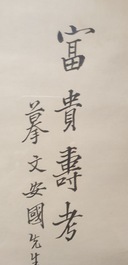 富貴壽考
摹文安國先生